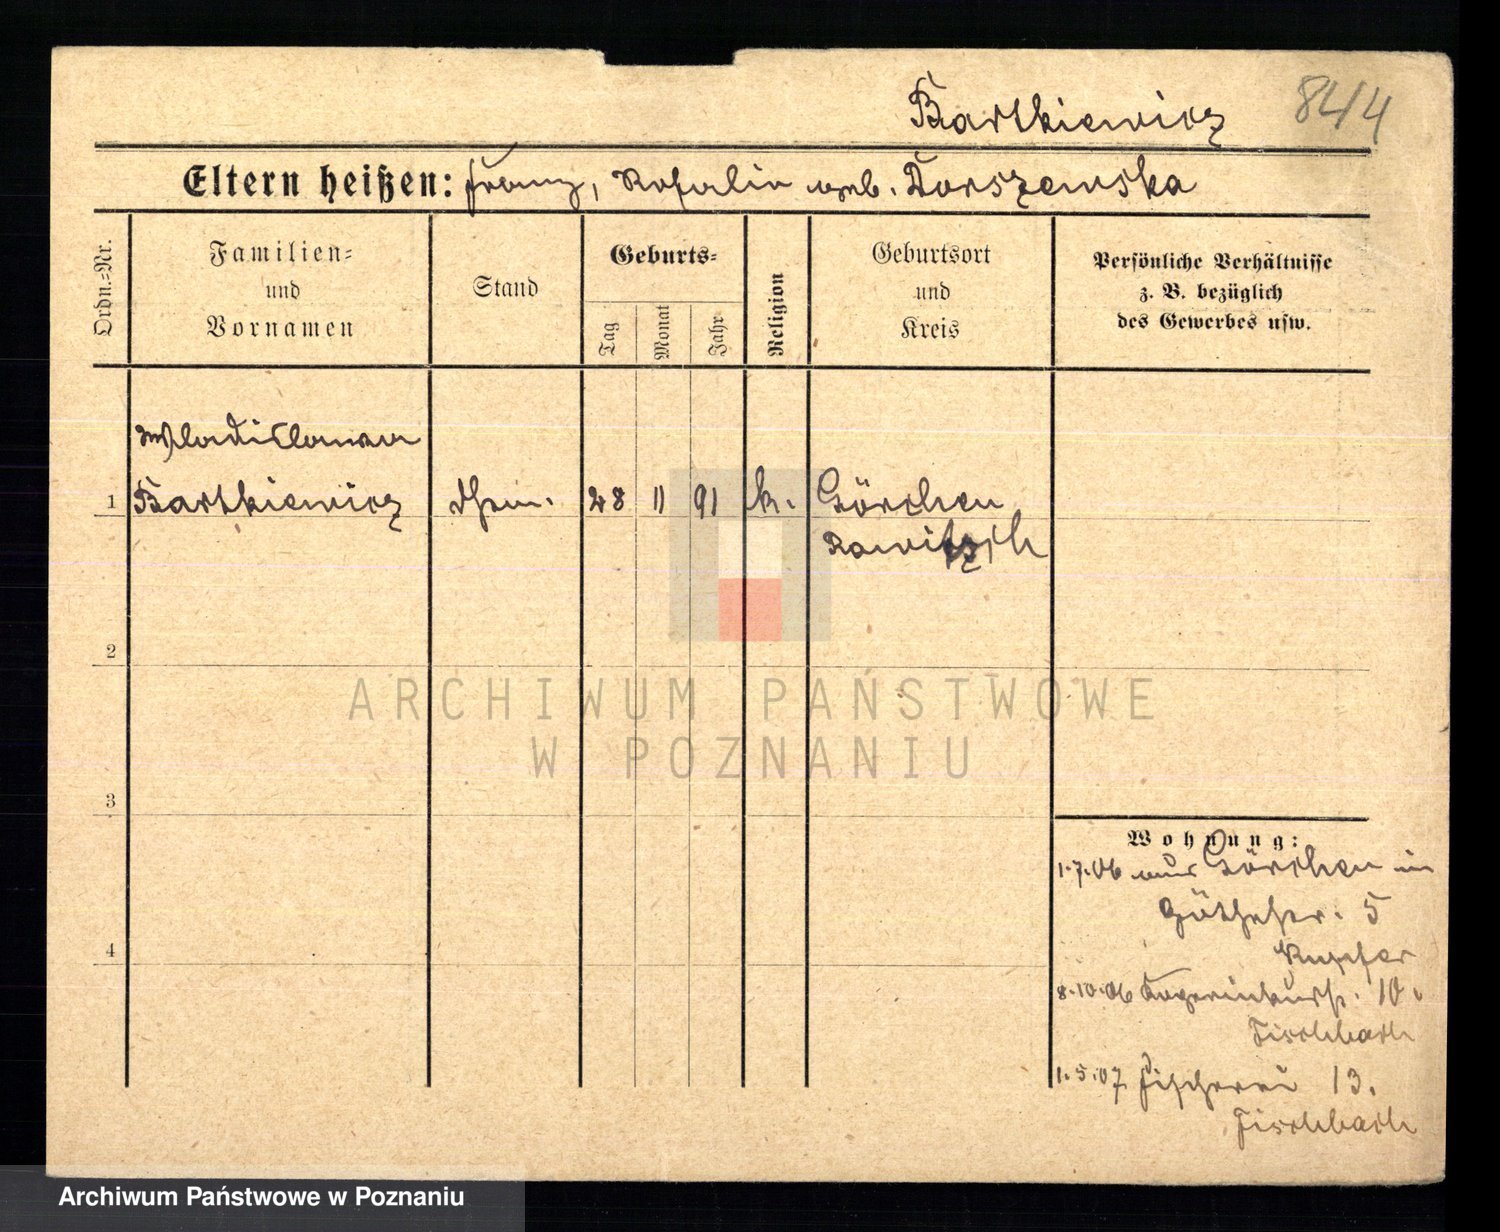 Bartkiewicz 844
Eltern heißen: Franz, Rosalie geb. Dorszewska
Ordn.-Nr.
Familien-
und
Vornamen
Stand
Geburts-
Tag
Monat
Jahr
Religion
Geburtsort
und
Kreis
Persönliche Verhältnisse
z. B. bezüglich
des Gewerbes usw.
Wladislawa
1 Bartkiewicz 28 11 91 k. Görchen
Rawitsch
2
3
4
Wohnung:
1.7.06 aus Görchen in
5
Kupfer
8.10.06 10.
Fischbach
1.5.07 Fischerei 13.
Fischbach
ARCHIWUM PAŃSTWOWE
W POZNANIU
Archiwum Państwowe w Poznaniu